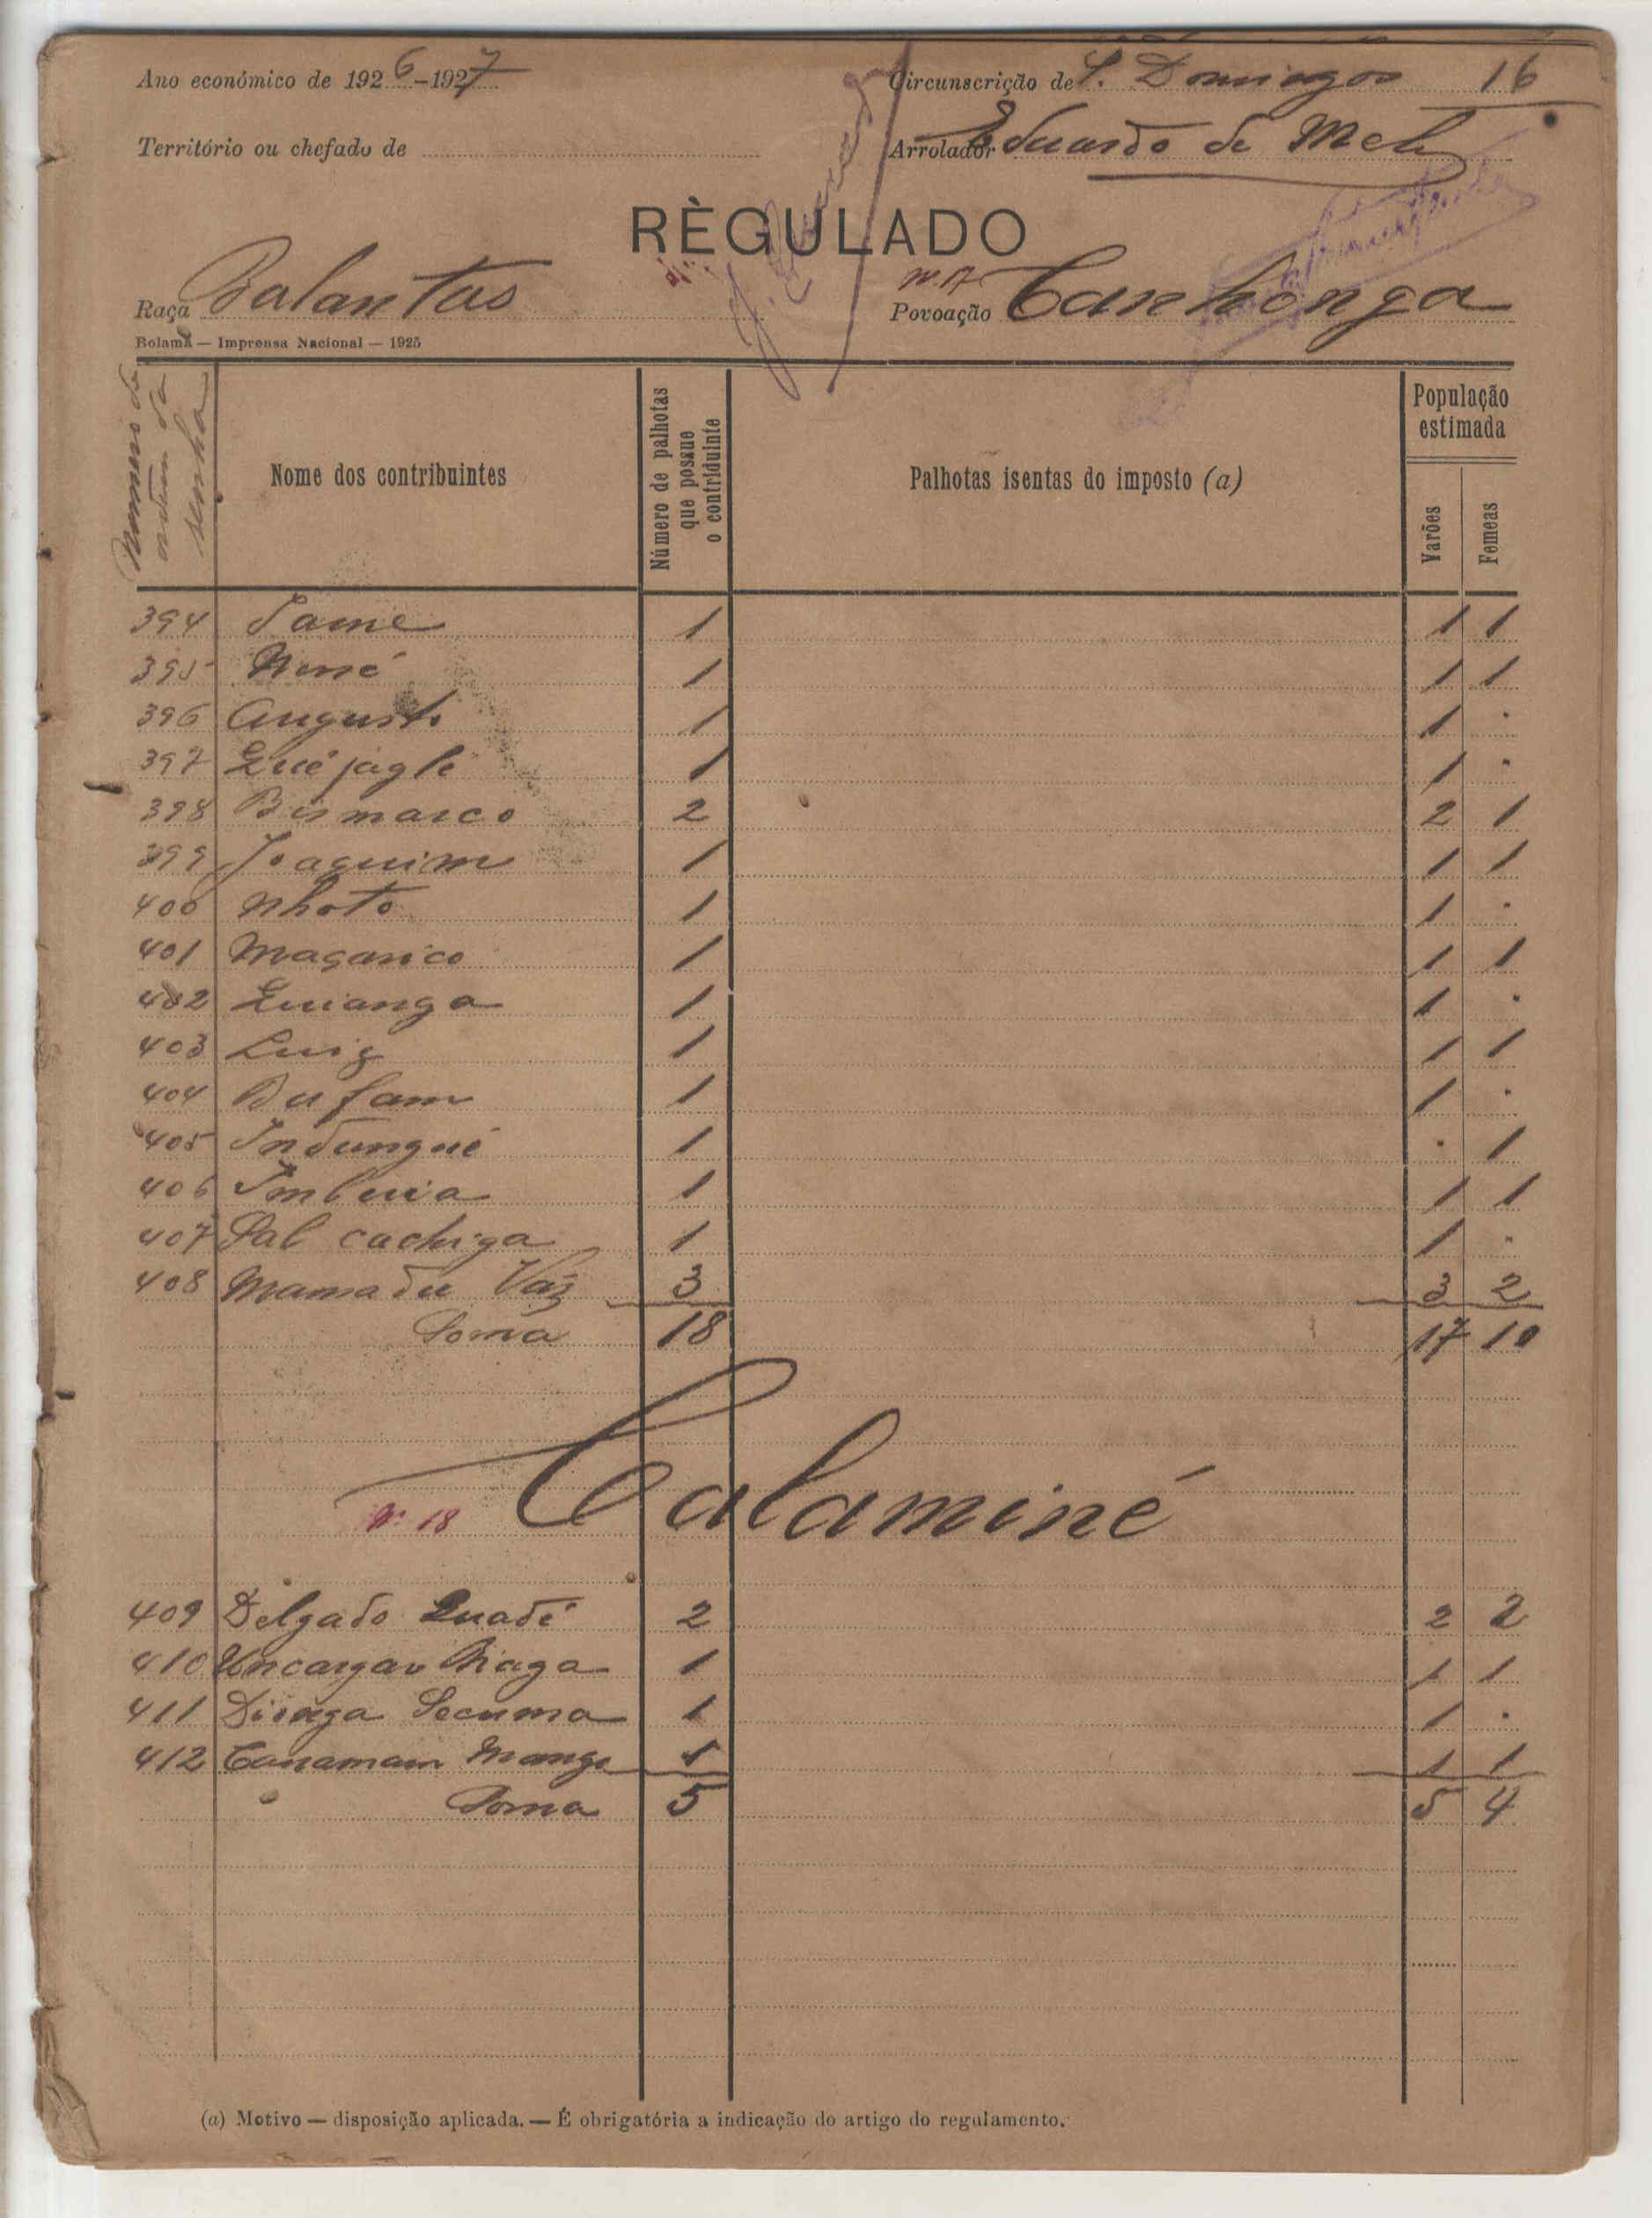 Ano económico de 1926-1927 Circunscrição de S. Domingos 16
Território ou chefado de Arrolador Eduardo de Melo
RÈGULADO
Raça Balantas Nº 17 Povoação Canhonga
Bolama — Imprensa Nacional — 1925
Numero de ordem da senha
Nome dos contribuintes
Número de palhotas que possue o contriduinte
Palhotas isentas do imposto (a)
População estimada
Varões Femeas
394 Same 1 1 1
395 Nené 1 1 1
396 Augusto 1 1 .
397 Quéjagle 1 1 .
398 Bismarco 2 2 1
399 Joaquim 1 1 1
400 Nhoto 1 1 .
401 Maçarico 1 1 1
402 Quianga 1 1 .
403 Luiz 1 1 1
404 Bufam 1 1 .
405 Indungué 1 . 1
406 1 1 1
407 cachiga 1 1 .
408 Mamadu Vaz 3 3 2
Soma 18 17 10
Nº 18 Calaminé
409 Delgado Quadé 2 2 2
410 1 1 1
411 Secuma 1 1 .
412 1 1 1
Soma 5 5 4
(a) Motivo — disposição aplicada. — É obrigatória a indicação do artigo do regulamento.